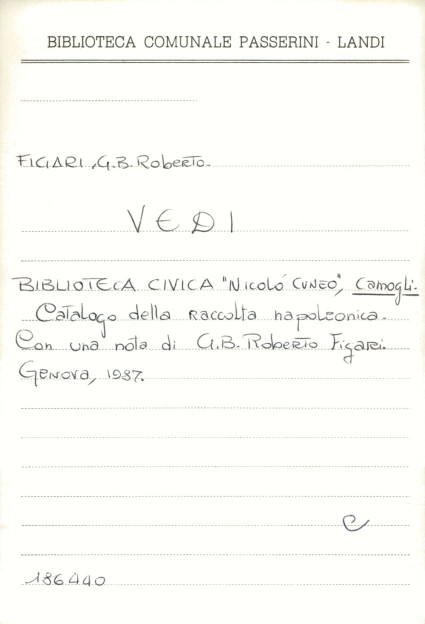 BIBLIOTECA COMUNALE PASSERINI - LANDI
FIGARI, G.B. Roberto.
VEDI
BIBLIOTECA CIVICA "NICOLÓ CUNEO", Camogli.
Catalogo della raccolta napoleonica.
Con una nota di G.B. Roberto Figari.
Genova, 1987.
C
186440